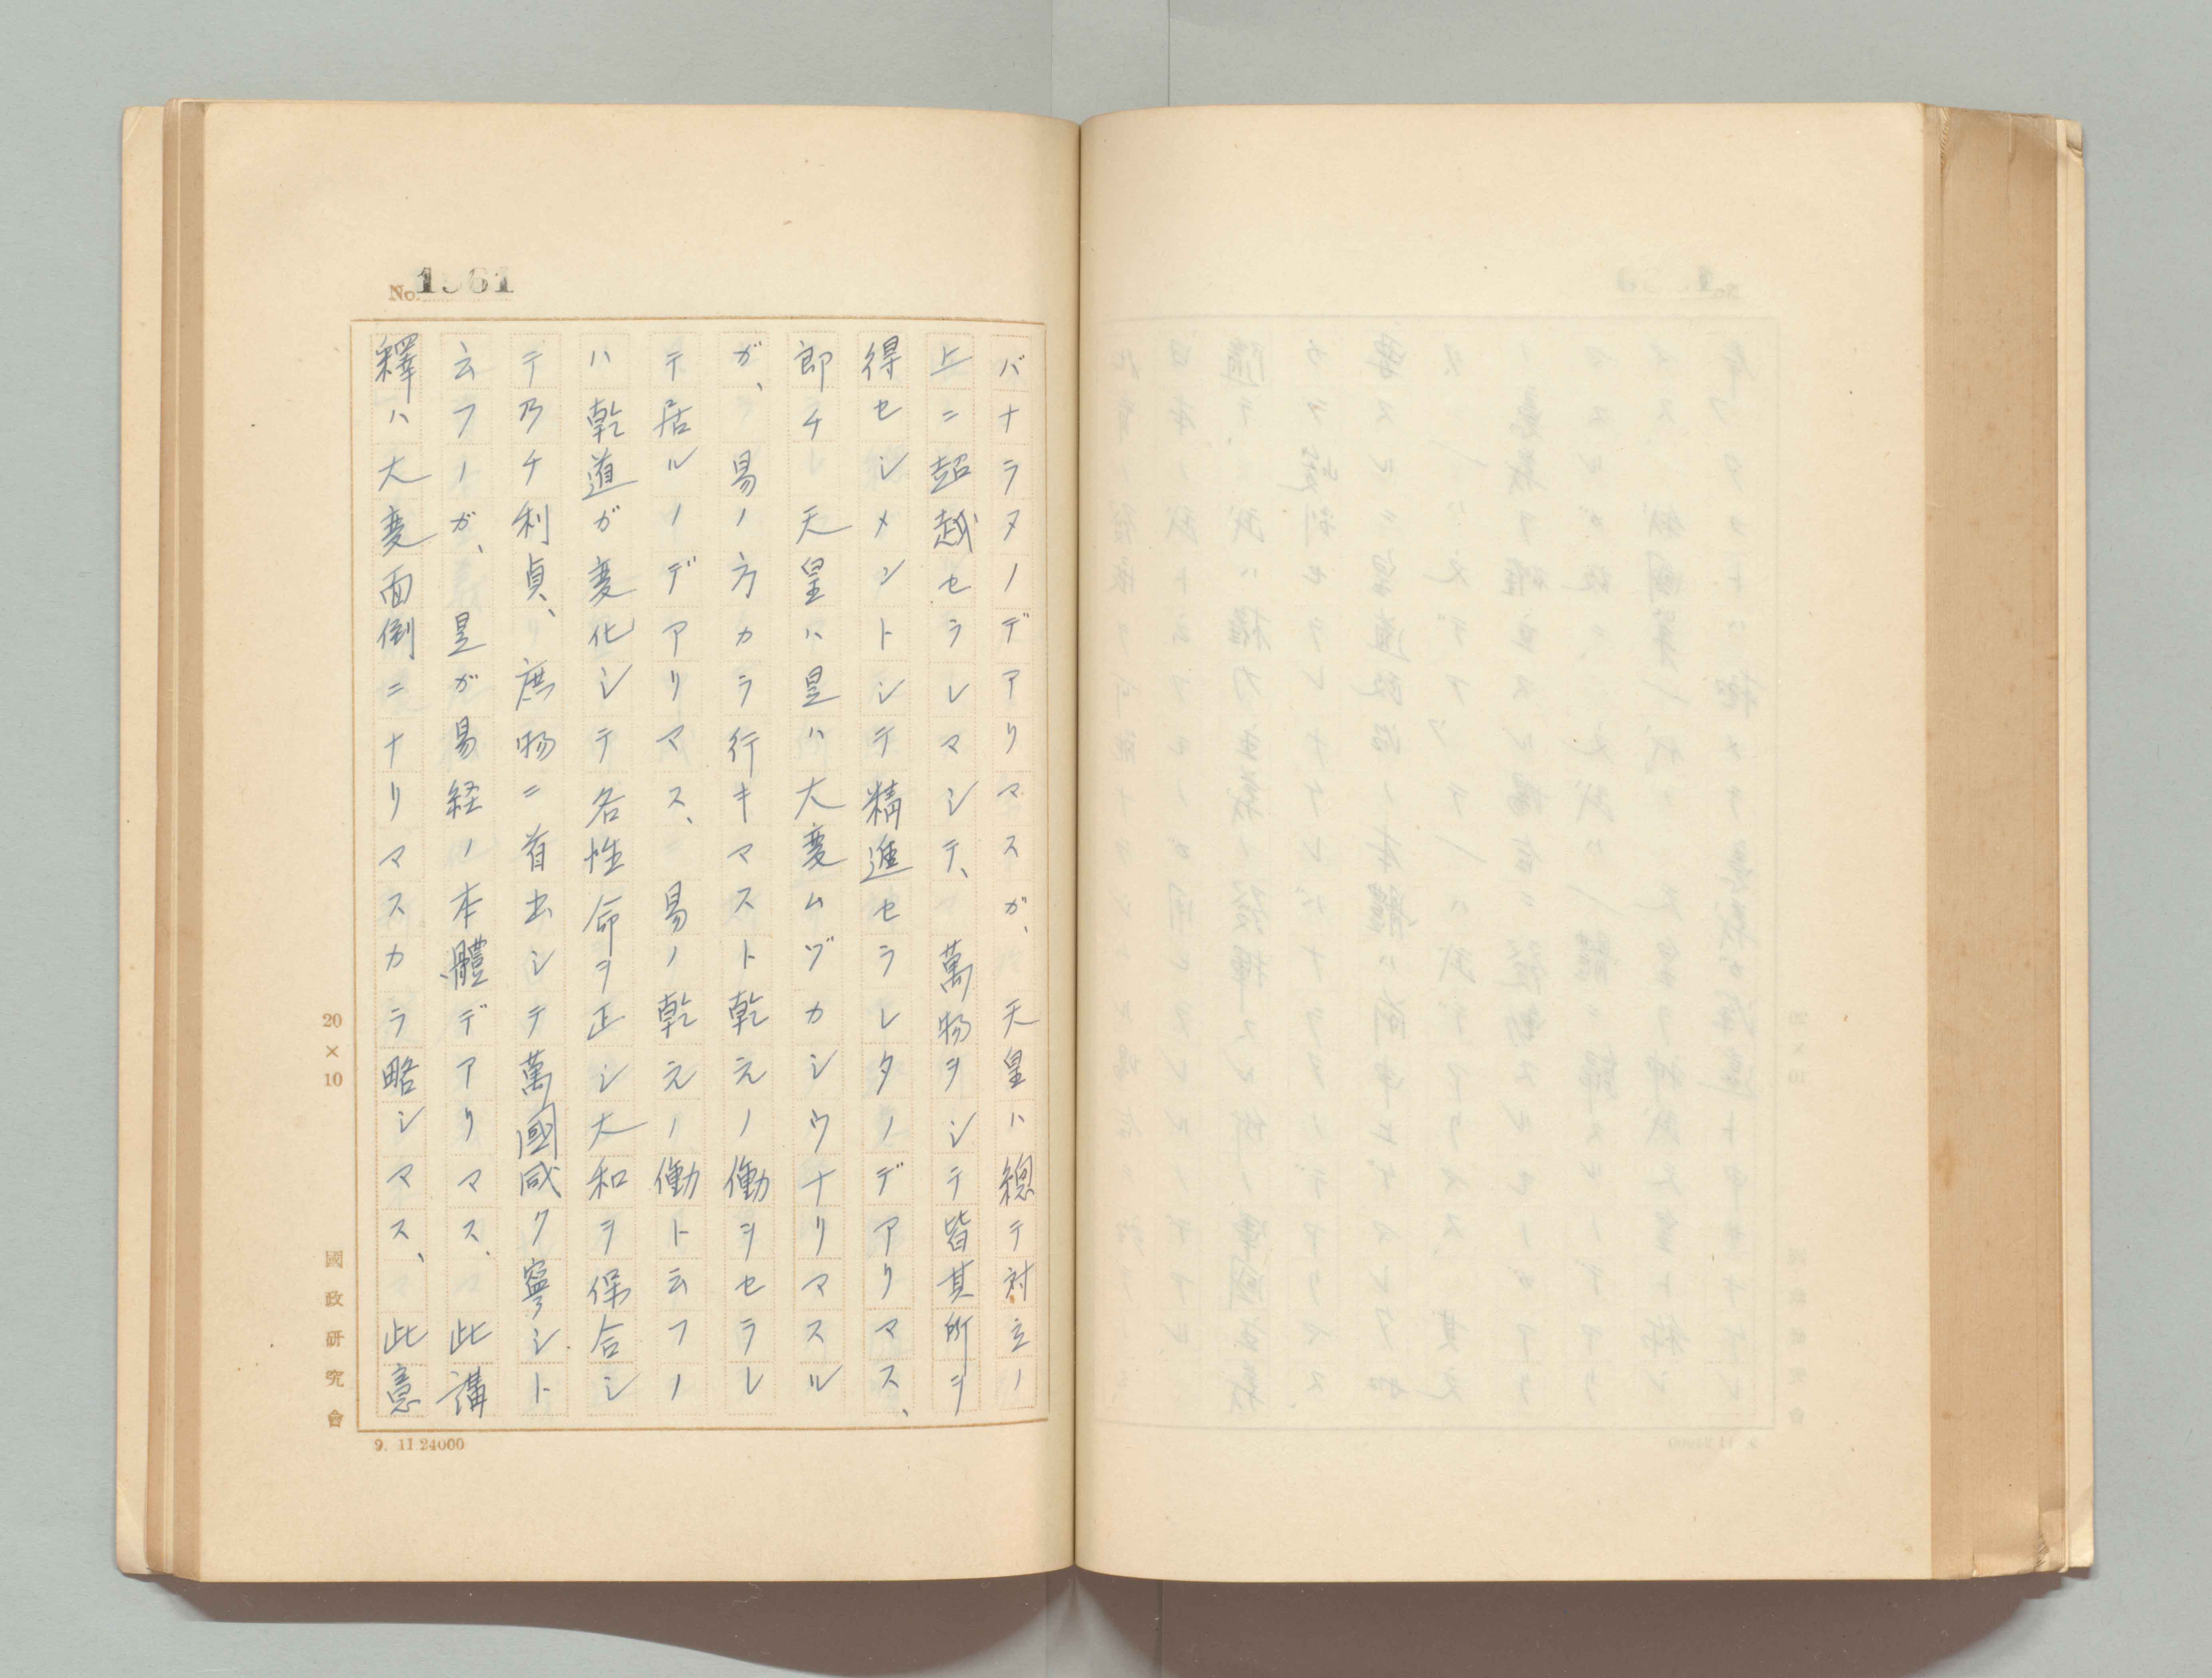 No. 1961
バナラヌノデアリマスガ、天皇ハ總テ対立ノ
上ニ超越セラレマシテ、萬物ヲシテ皆其所ヲ
得センメントシテ精進セラレタノデアリマス、
即チ 天皇ハ是ハ大変ムヅカシウナリマスル
ガ、易ノ方カラ行キマスト乾元ノ働ヲセラレ
テ居ルノデアリマス、易ノ乾元ノ働ト云フノ
ハ乾道ガ変化シテ各性命ヲ正シ大和ヲ保合シ
テ乃チ利貞、庶物ニ首出シテ萬國咸ク寧シト
云フノガ、是ガ易経ノ本體デアリマス、此講
釋ハ大変面倒ニナリマスカラ略シマス、此意
20×10
國政研究會
9. 11 24000